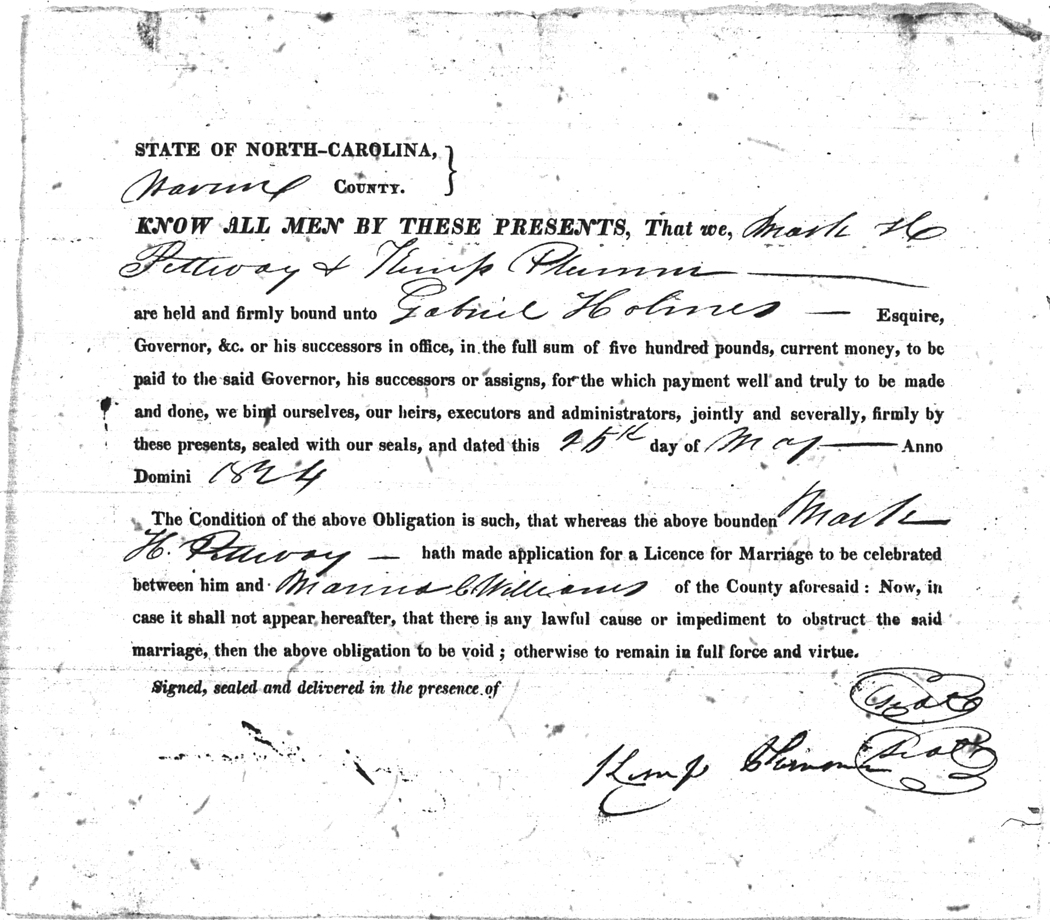 STATE OF NORTH-CAROLINA, }
Warren COUNTY.
KNOW ALL MEN BY THESE PRESENTS, That we, Mark H
Pettway & Kemp Plummer
are held and firmly bound unto Gabriel Holmes — Esquire,
Governor, &c. or his successors in office, in the full sum of five hundred pounds, current money, to be
paid to the said Governor, his successors or assigns, for the which payment well and truly to be made
and done, we bind ourselves, our heirs, executors and administrators, jointly and severally, firmly by
these presents, sealed with our seals, and dated this 25th day of May — Anno
Domini 1824
The Condition of the above Obligation is such, that whereas the above bounden Mark
H. Pettway — hath made application for a Licence for Marriage to be celebrated
between him and C. Williams of the County aforesaid : Now, in
case it shall not appear hereafter, that there is any lawful cause or impediment to obstruct the said
marriage, then the above obligation to be void ; otherwise to remain in full force and virtue.
Signed, sealed and delivered in the presence of
Seal
Kemp Plummer Seal